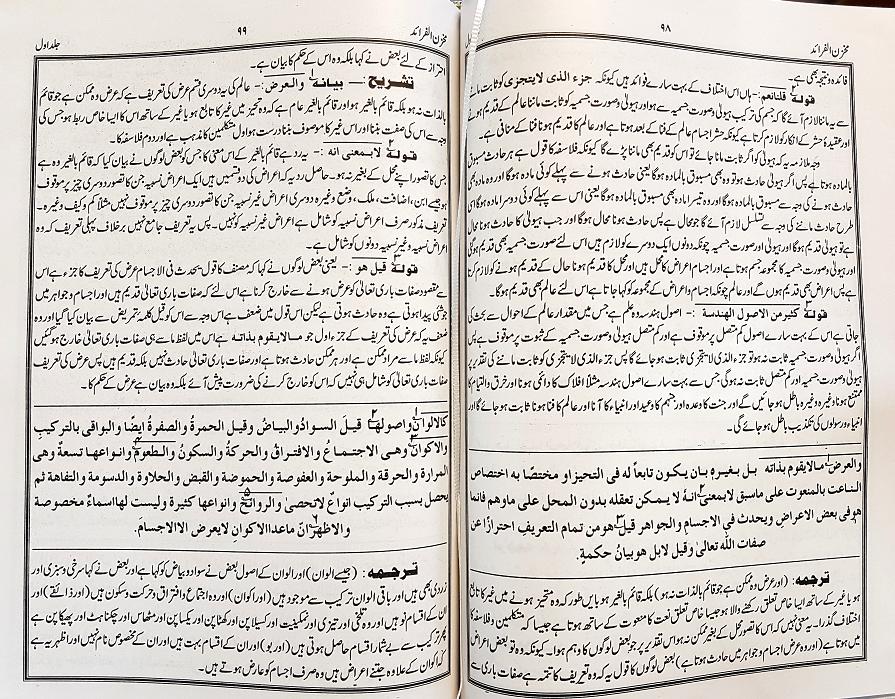 ۹۸
مخزن الفرائد
فائدہ و نتیجہ بھی ہے۔
قولہ قلنا نعم:- ہاں اس اختلاف کے بہت سارے فوائد ہیں کیونکہ جزء الذی لایتجزی کو ثابت ماننے
سے یہ ماننا لازم آئے گا کہ جسم کی ترکیب ہیولی وصورت جسمیہ سے ہو اور ہیولی وصورت جسمیہ کو ثابت ماننا عالم کے قدیم ہونے
اور عقیدۂ حشر کے انکار کو لازم کرتا ہے کیونکہ حشر اجسام عالم کے فنا کے بعد ہوتا ہے اور عالم کا قدیم ہونا فنا کے منافی ہے۔
وجہ ملازمہ یہ کہ ہیولی کو اگر ثابت مانا جائے تو اس کو قدیم بھی ماننا پڑے گا کیونکہ فلاسفہ کا قول ہے ہر حادث مسبوق
بالمادہ ہوتا ہے پس اگر ہیولی حادث ہو تو وہ بھی مسبوق بالمادہ ہوگا یعنی حادث ہونے سے پہلے کوئی مادہ ہوگا اور وہ مادہ بھی
حادث ہونے کی وجہ سے مسبوق بالمادہ ہوگا اور وہ تیسرا مادہ بھی مسبوق بالمادہ ہوگا یعنی اس سے پہلے کوئی دوسرا مادہ ہوگا اسی
طرح حادث ماننے کی وجہ سے تسلسل لازم آئے گا جو محال ہے پس حادث ہونا محال ہوگا اور جب ہیولی کا حادث ہونا محال
ہے تو ہیولی قدیم ہوگا اور ہیولی اور صورت جسمیہ چونکہ دونوں ایک دوسرے کو لازم ہیں اس لئے صورت جسمیہ بھی قدیم ہوگی
اور ہیولی وصورت جسمیہ کا مجموعہ جسم ہوتا ہے اور اجسام اعراض کا محل ہیں اور محل کا قدیم ہونا حال کے قدیم ہونے کو لازم کرتا
ہے پس اعراض بھی قدیم ہوں گے اور عالم چونکہ اجسام واعراض کے مجموعہ کو کہا جاتا ہے اس لئے عالم بھی قدیم ہوگا۔
قولہ کثیر من الاصول الھندسۃ :- اصول ہندسہ وہ علم ہے جس میں مقدار عالم کے احوال سے بحث کی
جاتی ہے اس کے بہت سارے اصول کم متصل پر موقوف ہے اور کم متصل ہیولی وصورت جسمیہ کے ثبوت پر موقوف ہے پس
اگر ہیولی وصورت جسمیہ ثابت نہ ہو تو جزء الذی لایتجزی ثابت ہو جائے گا پس جزء الذی لایتجزی کو ثابت ماننے کی تقدیر پر
ہیولی وصورت جسمیہ اور کم متصل ثابت نہ ہوگی جس سے بہت سارے اصول ہندسہ مثلاً افلاک کا دائمی ہونا اور خرق والتیام کا
ممتنع ہونا وغیرہ وغیرہ باطل ہو جائیں گے اور جنت کا وعدہ اور جہنم کا وعید اور انبیاء کا آنا اور عالم کا فنا ہونا ثابت ہو جائے گا اور
انبیاء ورسولوں کی تکذیب باطل ہو جائے گی۔
والعرض مالایقوم بذاتہ بل بغیرہ بان یکون تابعاً لہ فی التحیز او مختصا بہ اختصاص
الناعت بالمنعوت علی ماسبق لابمعنی انہٗ لا یمکن تعقلہ بدون المحل علی ماوھم فانما
ھو فی بعض الاعراض ویحدث فی الاجسام والجواھر قیل ھو من تمام التعریف احترازاً عن
صفات اللہ تعالیٰ وقیل لا بل ھو بیانُ حکمہٖ۔
ترجمہ: (اور عرض وہ ممکن ہے جو قائم بالذات نہ ہو) بلکہ قائم بالغیر ہو بایں طور کہ وہ متحیز ہونے میں غیر کا تابع
ہو یا غیر کے ساتھ ایسا خاص تعلق رکھنے والا ہو جیسا خاص تعلق نعت کا منعوت کے ساتھ ہوتا ہے جیسا کہ متکلمین وفلاسفہ کا
اختلاف گذرا۔ یہ معنی نہیں کہ اس کا تصور محل کے بغیر ممکن نہ ہو اس تقدیر پر جو بعض لوگوں کا وہم ہوا۔ کیونکہ وہ تو بعض اعراض
میں ہوتا ہے (اور وہ عرض اجسام وجواہر میں حادث ہوتا ہے) بعض لوگوں کا قول یہ کہ وہ تعریف کا تتمہ ہے صفات باری سے
۹۹
مخزن الفرائد
جلد اول
احتراز کے لئے بعض نے کہا بلکہ وہ اس کے حکم کا بیان ہے۔
تشریح :— بیانہ والعرض :- عالم کی یہ دوسری قسم عرض کی تعریف ہے کہ عرض وہ ممکن ہے جو قائم
بالذات نہ ہو بلکہ قائم بالغیر ہو اور قائم بالغیر عام ہے کہ وہ تحیز میں غیر کا تابع ہو یا غیر کے ساتھ اس کا ایسا خاص ربط ہو جس کی
وجہ سے اس کی صفت بننا اور اس غیر کا موصوف بننا درست ہو اول متکلمین کا مذہب ہے اور دوم فلاسفہ کا۔
قولہ لابمعنی انہ :- یہ رد ہے قائم بالغیر کے اس معنی کا جس کو بعض لوگوں نے بیان کیا کہ قائم بالغیر وہ ہے
جس کا تصور اپنے محل کے بغیر نہ ہو۔ حاصل رد یہ کہ اعراض کی دو قسمیں ہیں ایک اعراض نسبیہ جن کا تصور دوسری چیز پر موقوف
ہو جیسے این، اضافت، ملک، وضع وغیرہ دوسری اعراض غیر نسبیہ جن کا تصور دوسری چیز پر موقوف نہیں مثلاً کم وکیف وغیرہ۔
تعریف مذکور صرف اعراض نسبیہ کو شامل ہے اعراض غیر نسبیہ کو نہیں۔ پس یہ تعریف جامع نہیں برخلاف پہلی تعریف کہ وہ
اعراض نسبیہ وغیر نسبیہ دونوں کو شامل ہے۔
قولہ قیل ھو :- یعنی بعض لوگوں نے کہا کہ مصنف کا قول یحدث فی الاجسام عرض کی تعریف کا جزء ہے اس
سے مقصود صفات باری تعالیٰ کو عرض ہونے سے خارج کرنا ہے اس لئے کہ صفات باری تعالیٰ قدیم ہیں اور اجسام وجواہر میں
جو شئی پیدا ہوتی ہے وہ حادث ہوتی ہے لیکن اس قول میں ضعف ہے اس وجہ سے اس کو قیل کلمۂ تمریض سے بیان کیا گیا اور وہ
ضعف یہ کہ عرض کی تعریف کے جزء اول جو مالایقوم بذاتہ ہے اس میں لفظ ما سے ہی صفات باری تعالیٰ خارج ہوگئیں
کیونکہ لفظ ما سے مراد ممکن ہے اور ہر ممکن حادث ہوتا ہے اور صفات باری تعالیٰ حادث نہیں بلکہ قدیم ہیں پس عرض کی تعریف
صفات باری تعالیٰ کو شامل ہی نہیں کہ اس کو خارج کرنے کی ضرورت پیش آئے بلکہ وہ بیان ہے عرض کے حکم کا۔
کالالوان واصولھا قیلَ السوادُ والبیاضُ وقیل الحمرۃُ والصفرۃُ ایضًا والبواقی بالترکیبِ
والاکوانِ وھی الاجتماعُ والافتراقُ والحرکۃُ والسکونُ والطعوم وانواعھا تسعۃٌ وھی
المرارۃُ والحرقۃ والملوحۃ والعفوصۃ والحموضۃ والقبض والحلاوۃ والدسومۃ والتفاھۃ ثم
یحصل بسبب الترکیب انواعٌ لاتحصیٰ والروائحِ وانواعھا کثیرۃ ولیست لھا اسماءٌ مخصوصۃ
والاظھرُ انّ ماعدا الاکوانِ لایعرض الا الاجسامَ۔
ترجمہ: (جیسے الوان) اور الوان کے اصول بعض نے سواد وبیاض کو کہا ہے اور بعض نے کہا سرخی وسبزی اور
زردی بھی ہیں اور باقی الوان ترکیب سے موجود ہیں (اور اکوان) اور وہ اجتماع وافتراق وحرکت وسکون ہیں (اور ذائقے) اور
ان کے اقسام نو ہیں اور وہ تلخی اور تیزی اور نمکینیت اور کسیلا پن اور کھٹا پن اور یکسا پن اور مٹھاس اور چکناہٹ اور پھیکا پن ہے
پھر ترکیب سے بے شمار اقسام حاصل ہوتی ہیں (اور بو) اور ان کے اقسام بہت ہیں اور ان کے مخصوص نام نہیں اور اظہر یہ ہے
کہ اکوان کے علاوہ جتنے اعراض ہیں وہ صرف اجسام کو عارض ہوتے ہیں۔